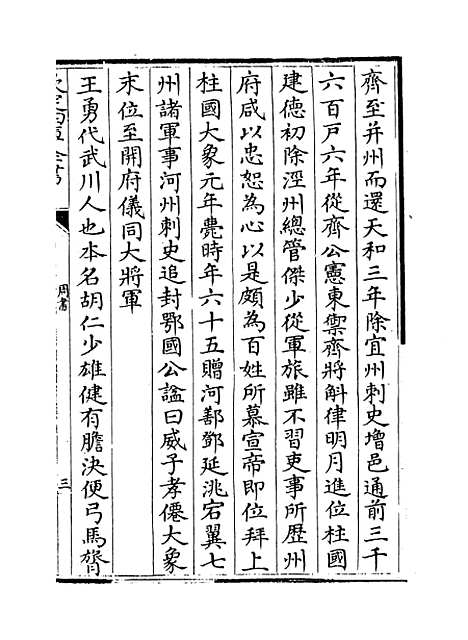 齊至并州而還天和三年除宜州刺史增邑通前三千
六百戸六年從齊公憲東禦齊將斛律明月進位柱國
建德初除涇州總管傑少從軍旅雖不習吏事所歴州
府咸以忠恕為心以是頗為百姓所慕宣帝即位拜上
柱國大象元年薨時年六十五贈河鄯鄧延洮宕翼七
州諸軍事河州刺史追封鄂國公諡曰威子孝僊大象
末位至開府儀同大將軍
王勇代武川人也本名胡仁少雄健有膽決便弓馬膂
周書
三